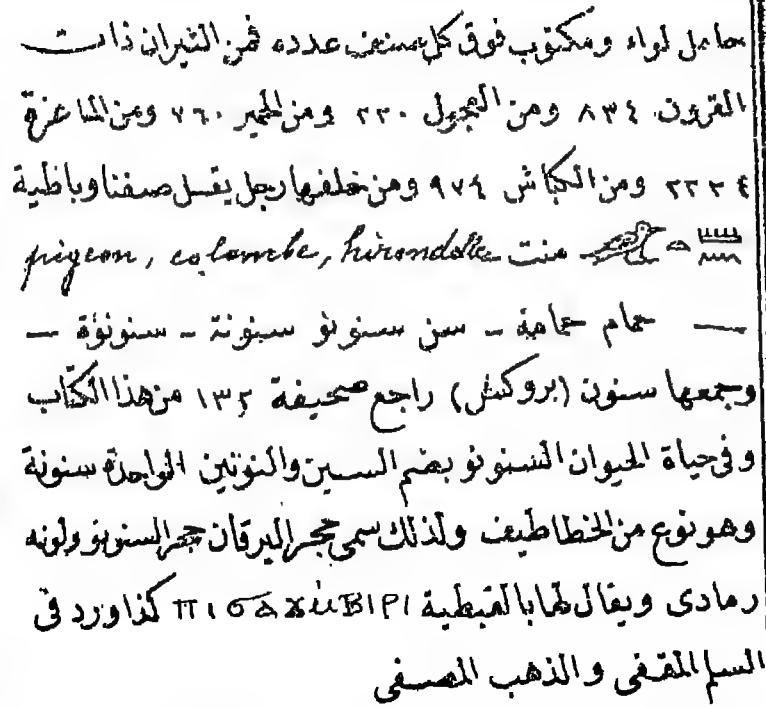 حامل لواء ومكتوب فوق كل صنف عدده فمن الثيران ذات
القرون ٨٣٤ ومن العجول ٢٢٠ ومن الحمير ٧٦٠ ومن الماعزة
٢٢٣٤ ومن الكباش ٩٧٤ ومن خلفها رجل يقسل صفنا وباظية
منت pigeon, colombe, hirondelle
— حمام حمامة - سن سنونو سنونة - سنونوة —
وجمعها سنون (بروكش) راجع صحيفة ١٣٢ من هذا الكتاب
وفى حياة الحيوان السنونو بضم السين والنونين الواحدة سنونة
وهو نوع من الخطاطيف ولذلك سمى حجر اليرقان حجر السنونو ولونه
رمادى ويقال لها بالقبطية كذا ورد فى
السلم المقفى والذهب المصفى